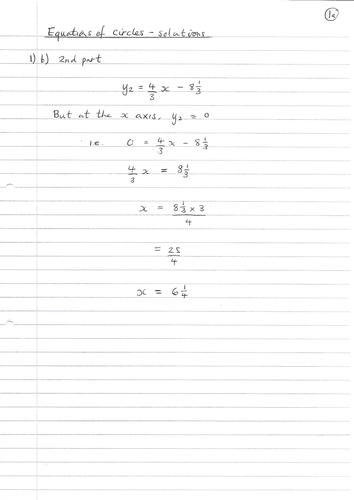 1c
Equations of circles - solutions
1) b) 2nd part
y₂ = 4/3 x - 8 1/3
But at the x axis, y₂ = 0
i.e. 0 = 4/3 x - 8 1/3
4/3 x = 8 1/3
x = 8 1/3 × 3 / 4
= 25/4
x = 6 1/4